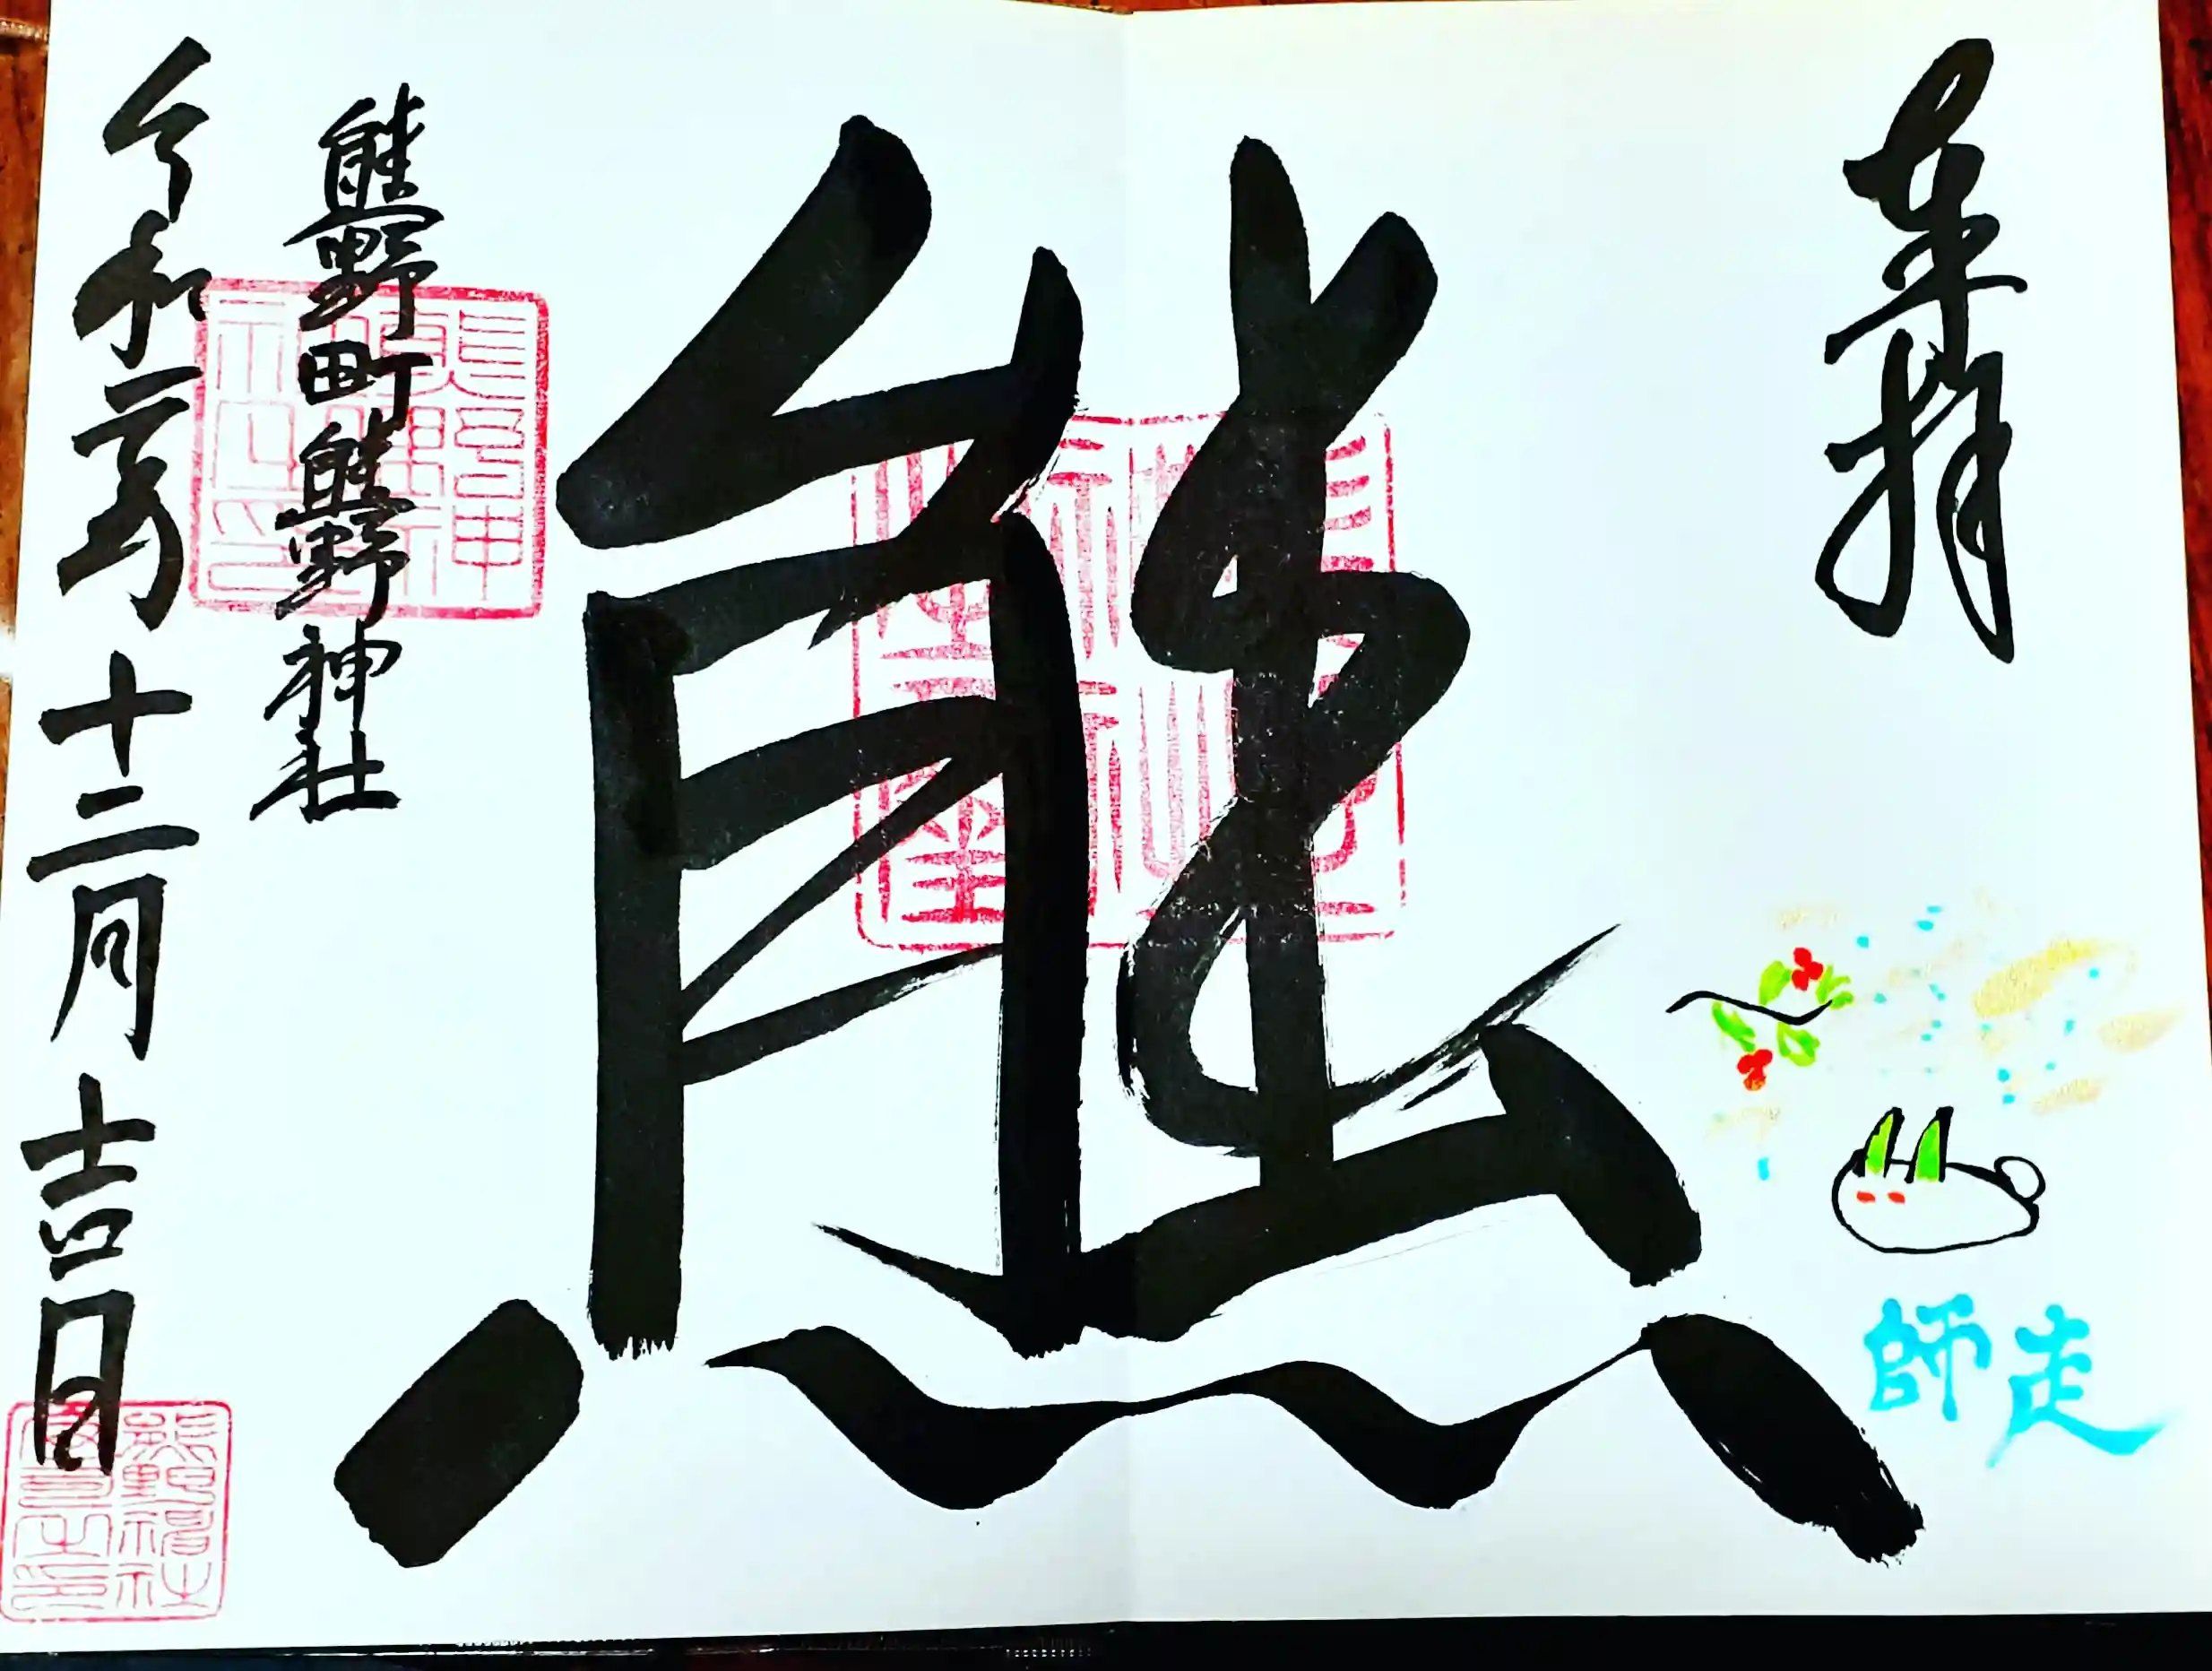 奉拝
師走
熊
熊野町熊野神社
令和二年十二月吉日